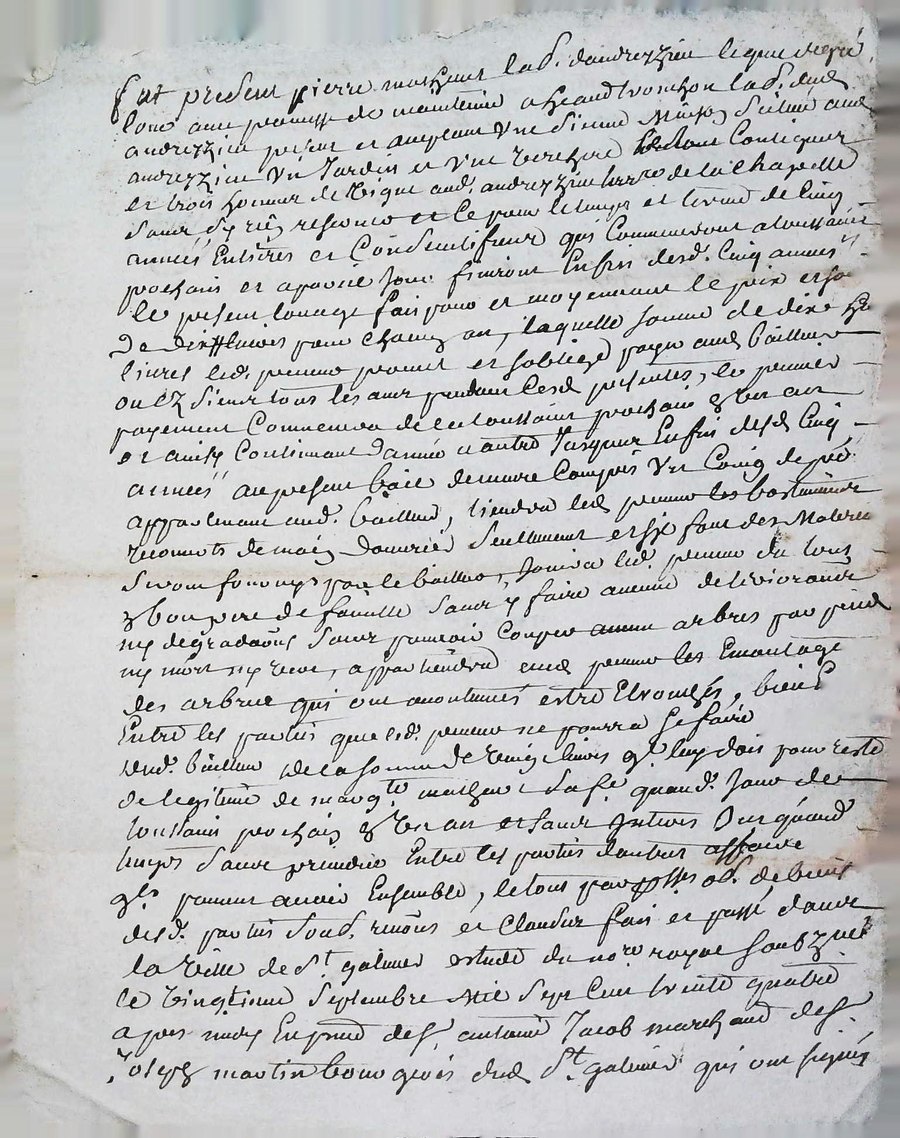 fut present pierre mathieu lab.r dandrezzieu lequel de gré
loue avec promesse de maintenir a Jean tronchon lab.r dud
andrezzieu present et acceptant une sienne maison scituée aud
andrezzieu un Jardin et une verchere le tout contigue
et trois hommes de vigne aud. andrezzieu de la chapelle
sans sy rien reserver et ce pour le temps et terme de cinq
années entieres et consecutifves qui commenceront a toussaints
prochain et a pareil Jour finiront en fin desd. cinq années
le present louage fait pour et moyennant le prix et so
de dix livres pour chacun an, laquelle somme de dix
livres led. preneur promet et soblige payer aud bailleur
ou es siens tous les ans pendant lesd presentes, le premier
payement commencera de la toussaint prochain en un an
et ainsy continuant dannée a autre Jusques en fin desd cinq
années au present bail demeure compris un coing de pré
appartenant aud. bailleur, tiendra led preneur les bastiments
recouverts de main douvrier seullement et six font des materi
seront fournys par le bailleur, Jouira led. preneur du tout
en bon pere de famille sans y faire aucune deteriorations
ny degradaons sans pouvoir couper aucun arbres par pied
ny mort ny vert, appartiendra aud preneur les emontage
des arbres qui ont accoutumés estre etronchés, bien
entre les parties que led. preneur ne pourra se faire
dud. bailleur de la somme de vingt livres q.l luy doit pour reste
de legitime de marg.te mathieu sa fe. quaud. Jour de
toussaint prochain en un an et sans interets Jusquaud
temps sans prejudice entre les parties dautres affaire
q.ls peuvent avoir ensemble, le tout par p.sses ob. de biens
desd. parties soub. renons et clauses fait et passé dans
la ville de S.t galmier estude du no.re royal soubz.né
le vingtieme septembre mil sept cent trente quatre
apres midy en pnce de s.r antoine Jacob marchand de s.r
Joseph martin bourgeois dud S.t galmier qui ont signés